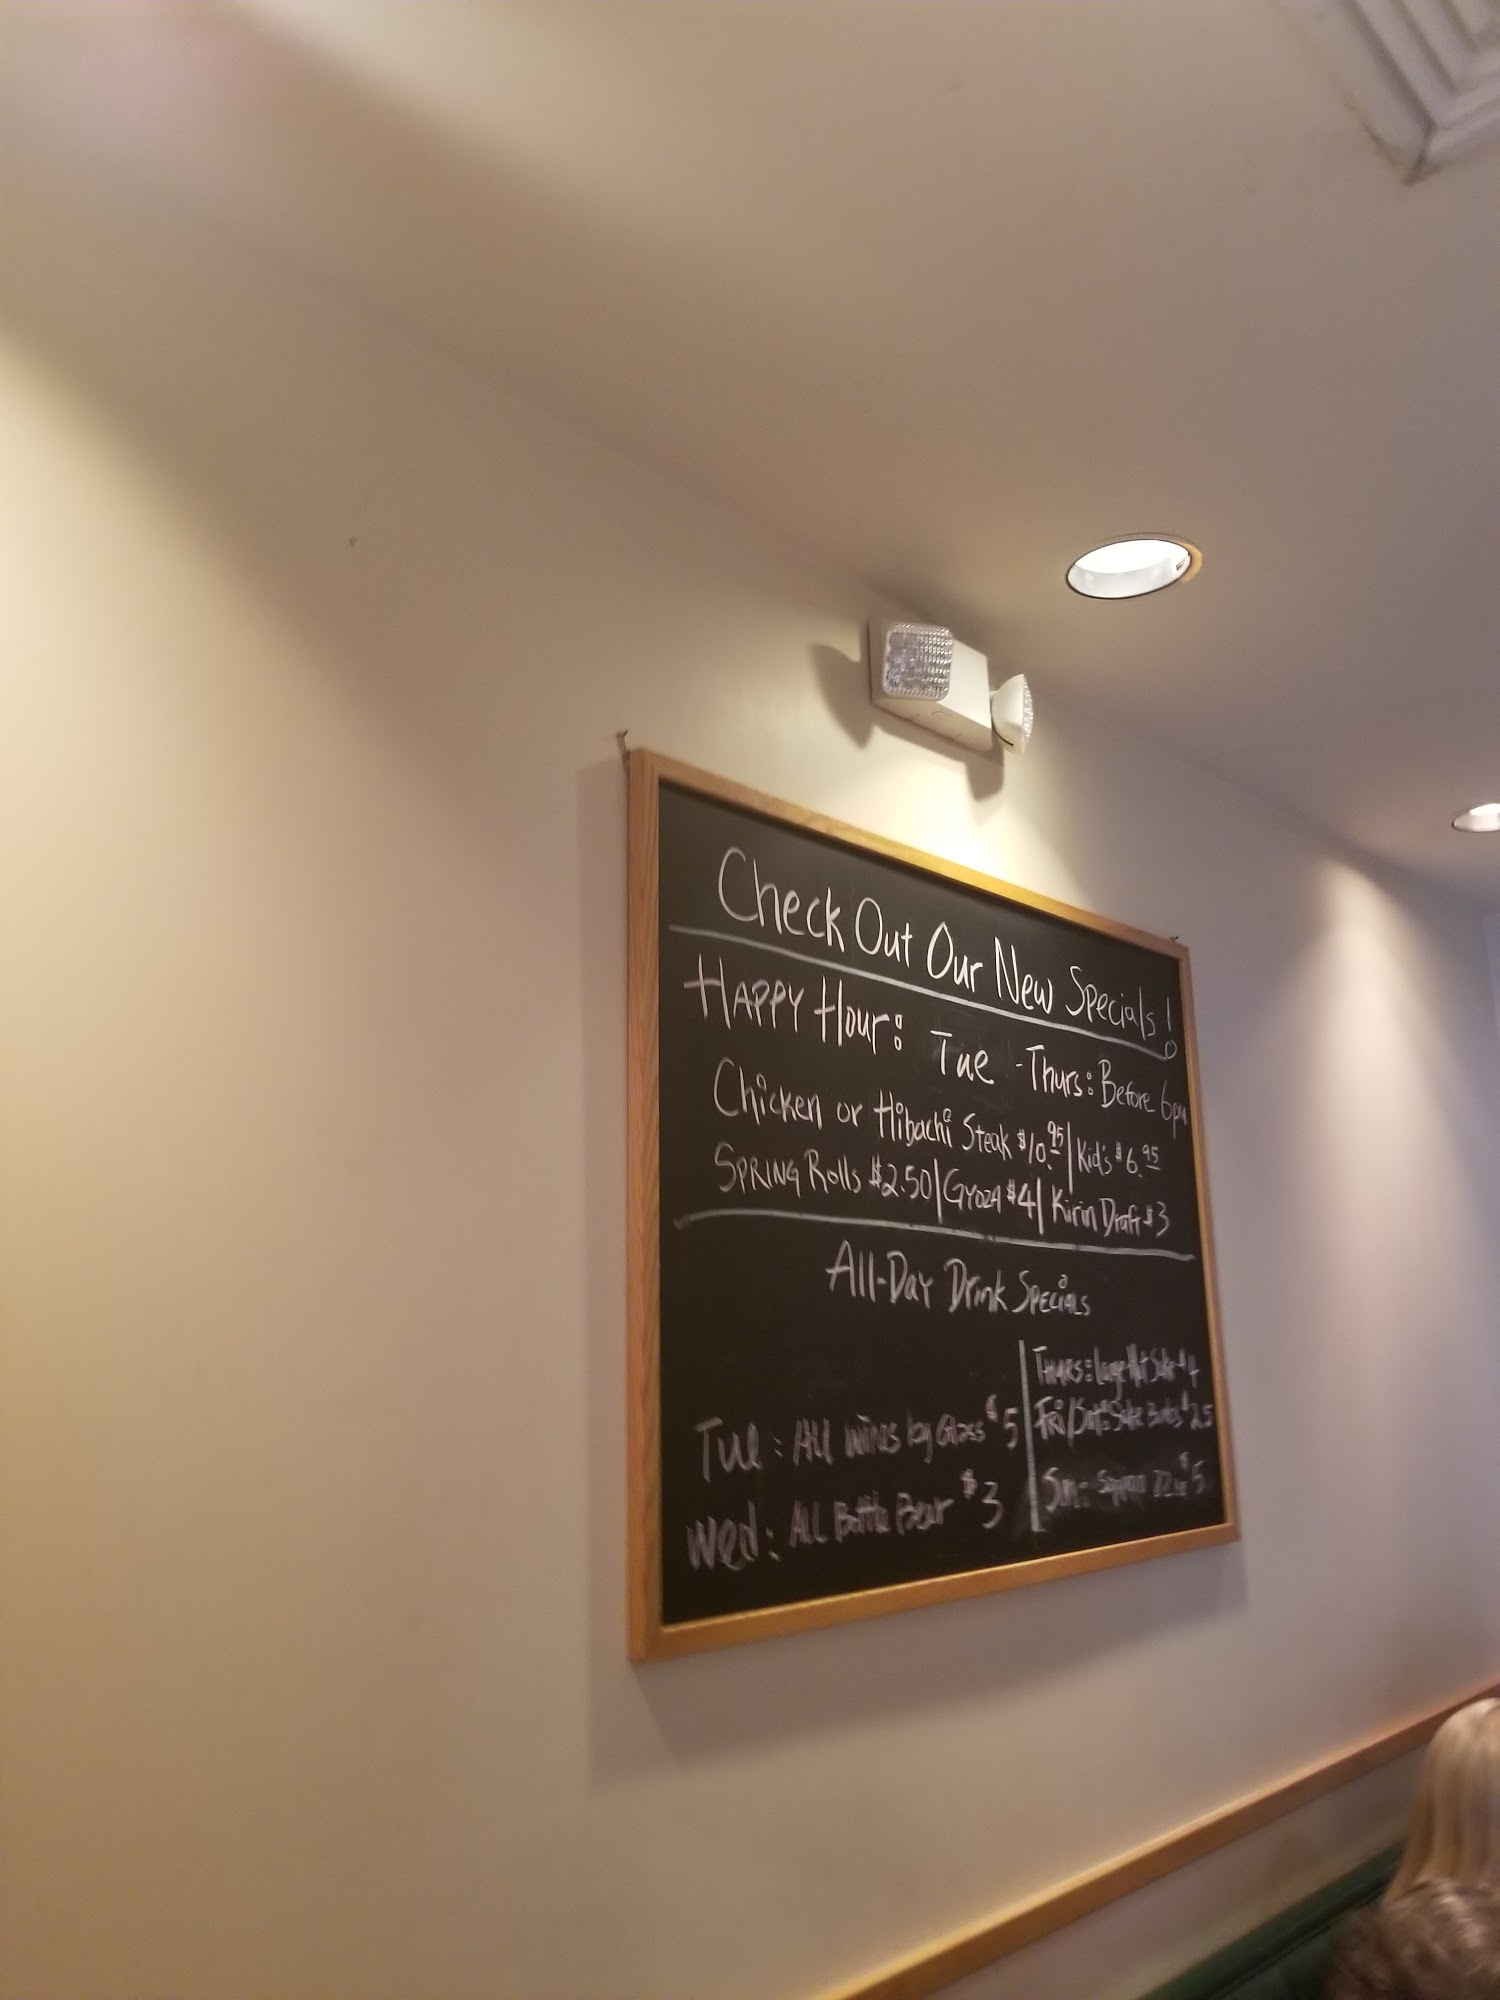 Check Out Our New Specials!
HAPPY Hour: Tue - Thurs: Before 6pm
Chicken or Hibachi Steak $10.95 | Kid's $6.95
SPRING Rolls $2.50 | GYOZA $4 | Kirin Draft $3
All-Day Drink Specials
Tue: All wines by Glass $5
Wed: All Bottle Beer $3
Thurs: Large Hot Sake $4
Fri/Sat: Sake $2.5
Sun: 22oz $5